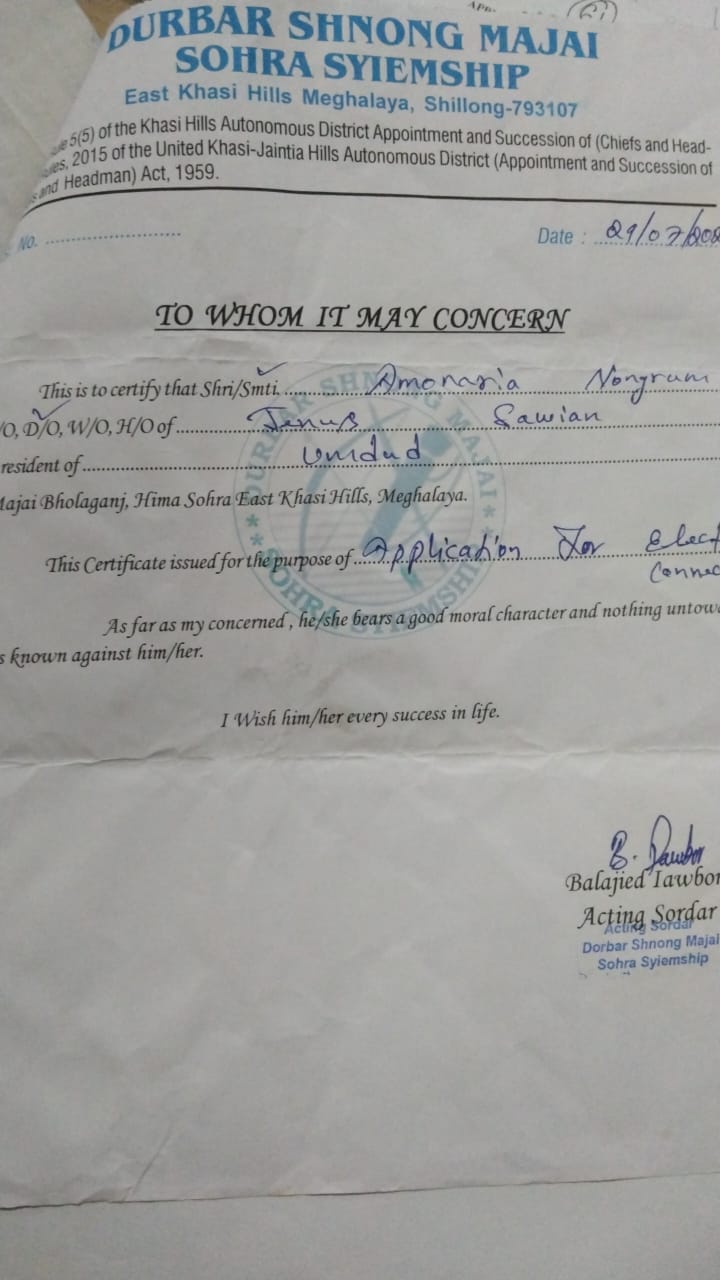 DURBAR SHNONG MAJAI
SOHRA SYIEMSHIP
East Khasi Hills Meghalaya, Shillong-793107
5(5) of the Khasi Hills Autonomous District Appointment and Succession of (Chiefs and Head-
2015 of the United Khasi-Jaintia Hills Autonomous District (Appointment and Succession of
and Headman) Act, 1959.
No. ........................... Date : 29/07/202
TO WHOM IT MAY CONCERN
This is to certify that Shri/Smti. Amonaria Nongrum
/O, D/O, W/O, H/O of Jenus Sawian
resident of Umdud
Majai Bholaganj, Hima Sohra East Khasi Hills, Meghalaya.
This Certificate issued for the purpose of Application For Elect
Connec
As far as my concerned, he/she bears a good moral character and nothing untowa
s known against him/her.
I Wish him/her every success in life.
DURBAR SHNONG MAJAI
SOHRA SYIEMSHIP
B. Iawbor
Balajied Iawbor
Acting Sordar
Acting Sordar
Dorbar Shnong Majai
Sohra Syiemship